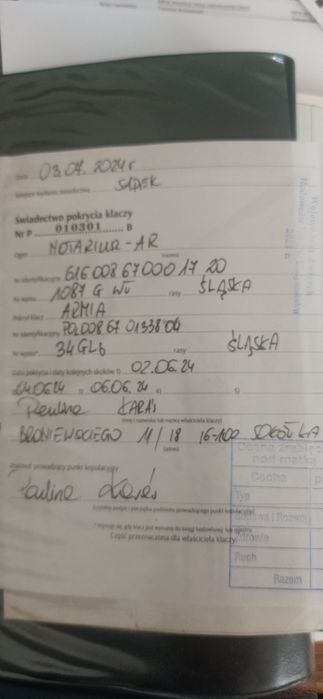 Data 03.07.2024 r
SADEK
Świadectwo pokrycia klaczy
Nr P 010301 B
Ogier NOTARIUS-AR
Nr identyfikacyjny 616 008 67 000 17 20
Nr wpisu 1087 G Wł rasy ŚLĄSKA
Pokrył klacz ARMIA
Nr identyfikacyjny POL008 67 01338 04
Nr wpisu* 34 GLb rasy ŚLĄSKA
Data pokrycia i daty kolejnych skoków 1) 02.06.24
04.06.24 06.06.24
Paulina KARAŚ
(imię i nazwisko lub nazwa właściciela klaczy)
BRONIEWSKIEGO 11/18 16-100 SOKÓŁKA
(adres)
Podmiot prowadzący punkt kopulacyjny
Paulina Karaś
(czytelny podpis i pieczątka podmiotu prowadzącego punkt kopulacyjny)
Część przeznaczona dla właściciela klaczy
Ocena źrebięcia
pod matką
Cecha
Typ
Budowa i Rozwój
Zdrowie
Ruch
Razem